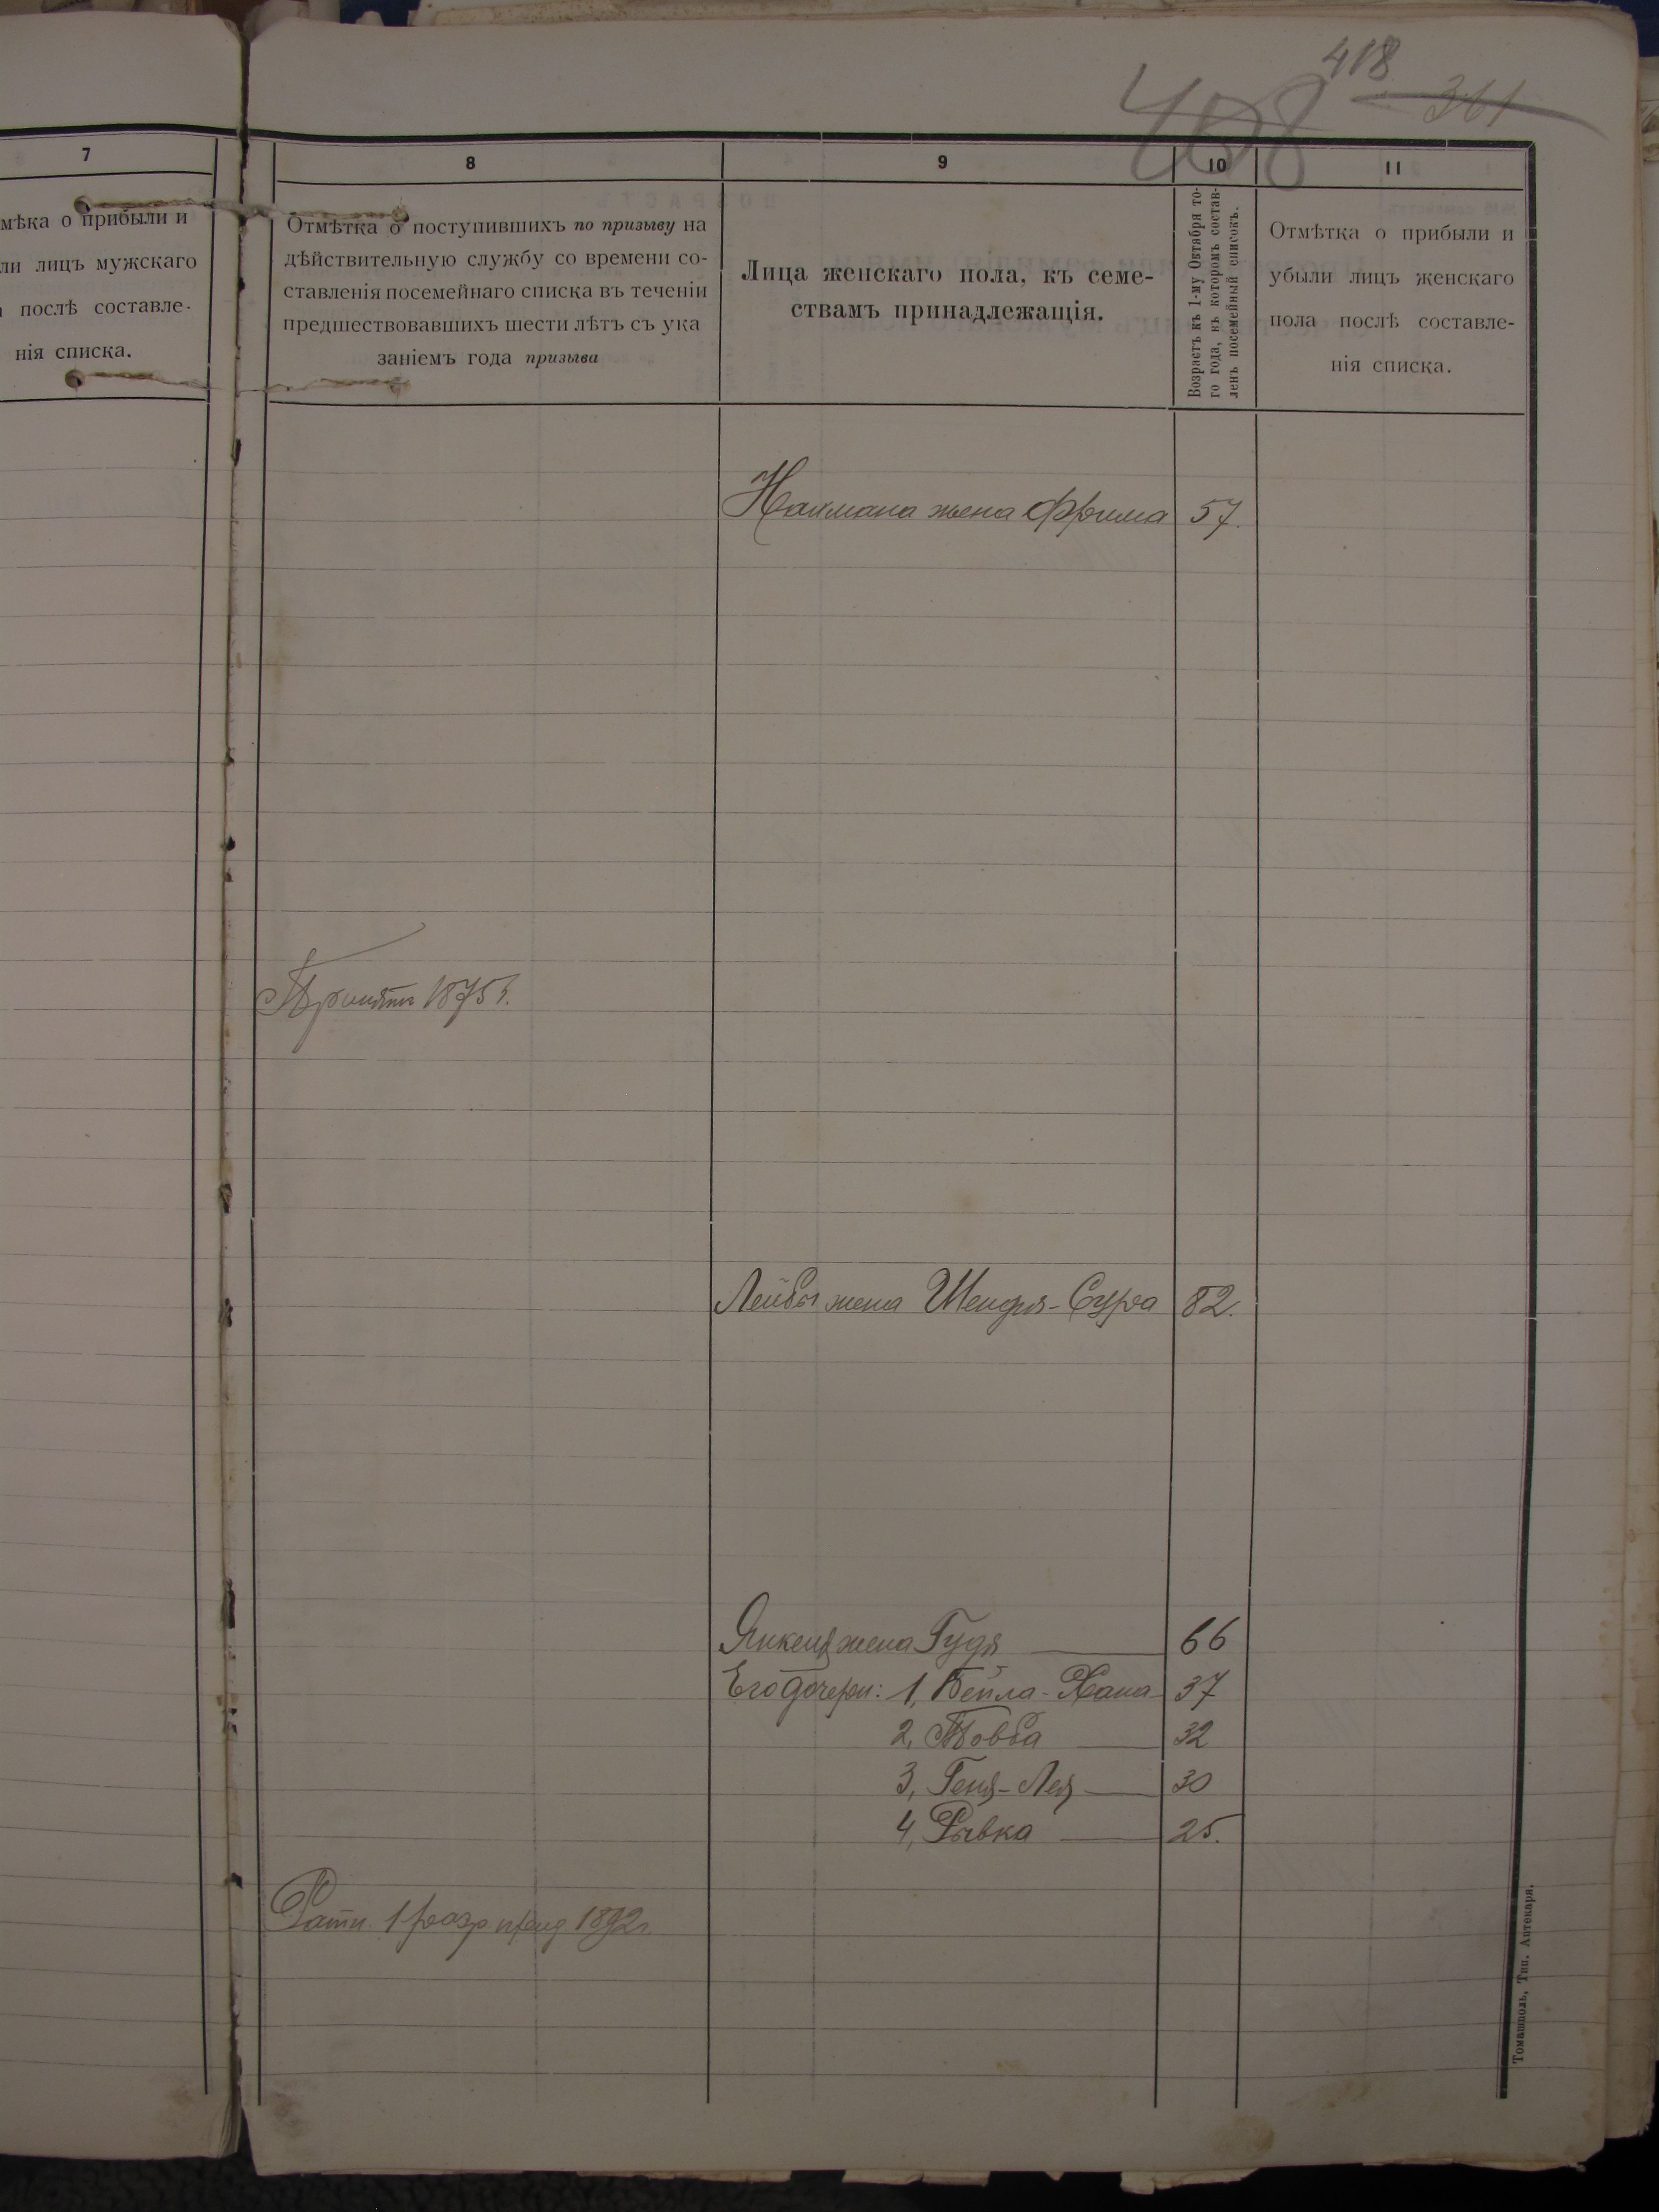 418
408 361
7
8
9
10
11
мѣка о прибыли и
ли лицъ мужскаго
послѣ составле-
нія списка.
Отмѣтка о поступившихъ по призыву на
дѣйствительную службу со времени со-
ставленія посемейнаго списка въ теченіи
предшествовавшихъ шести лѣтъ съ ука
заніемъ года призыва
Лица женскаго пола, къ семе-
ствамъ принадлежащія.
Возрастъ къ 1-му Октября то-
го года, къ которомъ состав-
ленъ посемейный список.
Отмѣтка о прибыли и
убыли лицъ женскаго
пола послѣ составле-
нія списка.
Наймана жена Фрима 57.
Принятъ 1875 г.
Лейбы жена Шендля-Сура 82.
Янкеля жена Гудя 66
Его дочери: 1, Бейла-Хана 37
2, Товба 32
3, Геня-Лея 30
4, Рывка 25.
Ратн. 1 разр 1892 г.
Томашполь, Тип. Аптекаря.